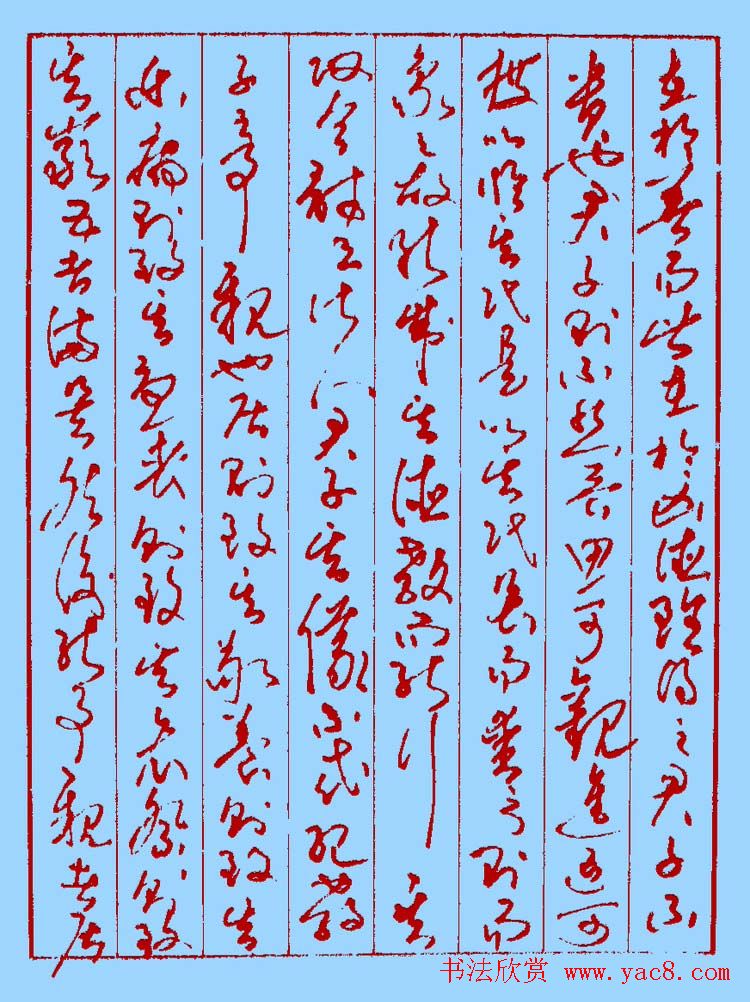 在於善而皆在於凶德雖得之君子不
貴也君子則不然可觀進退可
度以臨其民是以其民畏而愛之則而
象之故能成其德教而能行其
政令詩云淑人君子其儀不忒紀孝
子之事親也居則致其敬養則致其
樂病則致其憂喪則致其哀祭則致
其嚴五者備矣然後能事親者居
书法欣赏 www.yac8.com